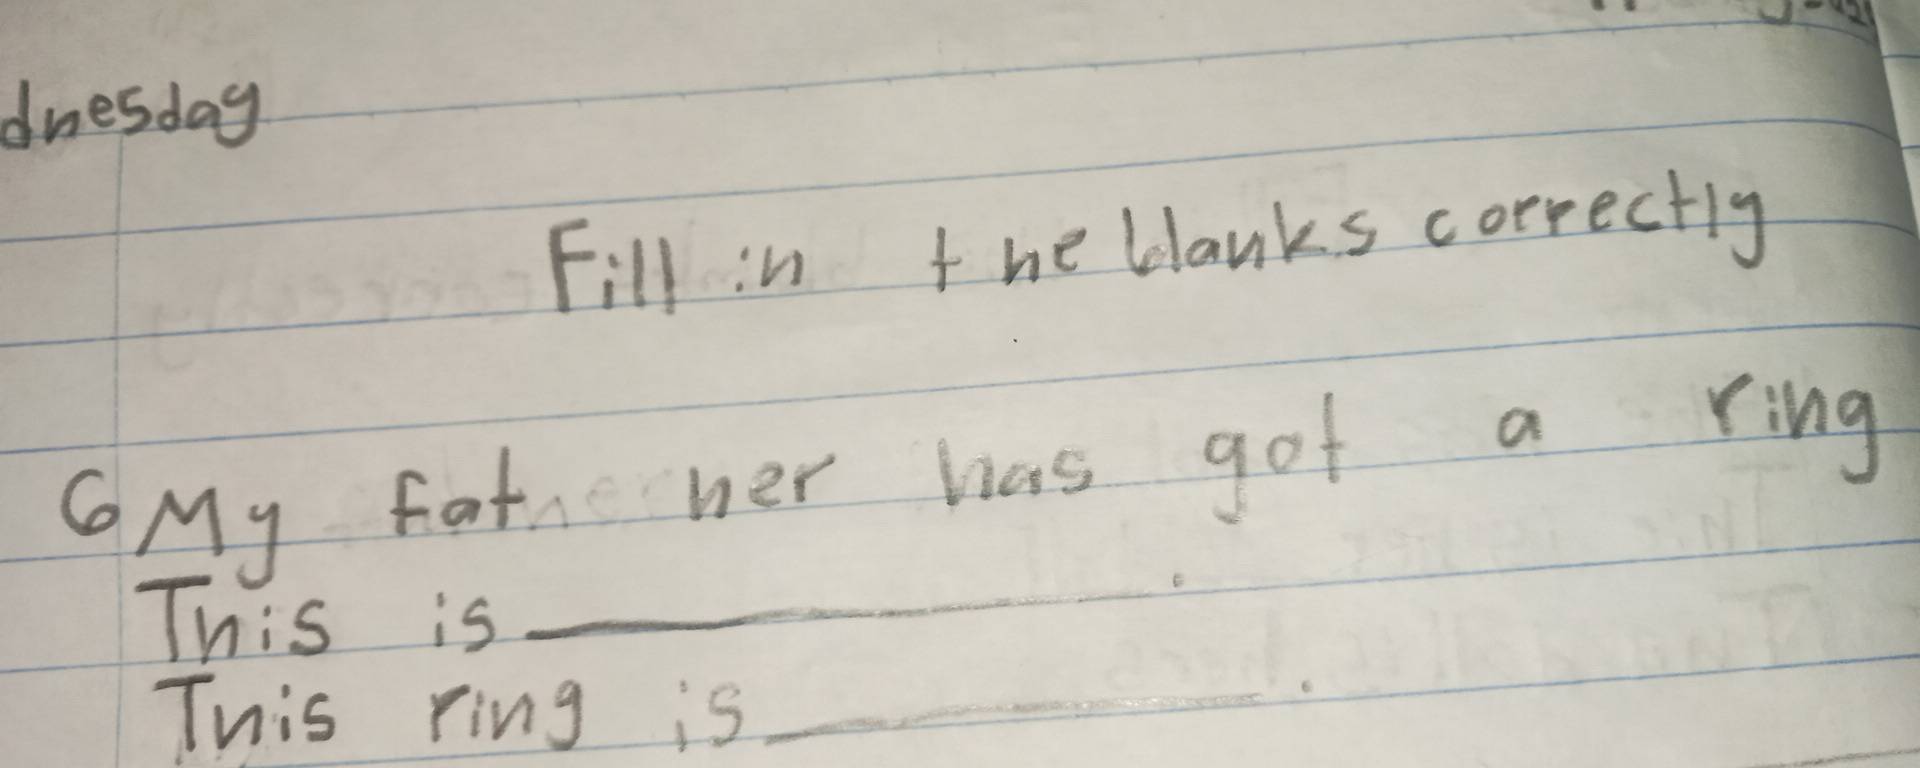 dnesday
Fill in the blanks correctly
6 My father has got a ring
This is ____________.
This ring is __________.